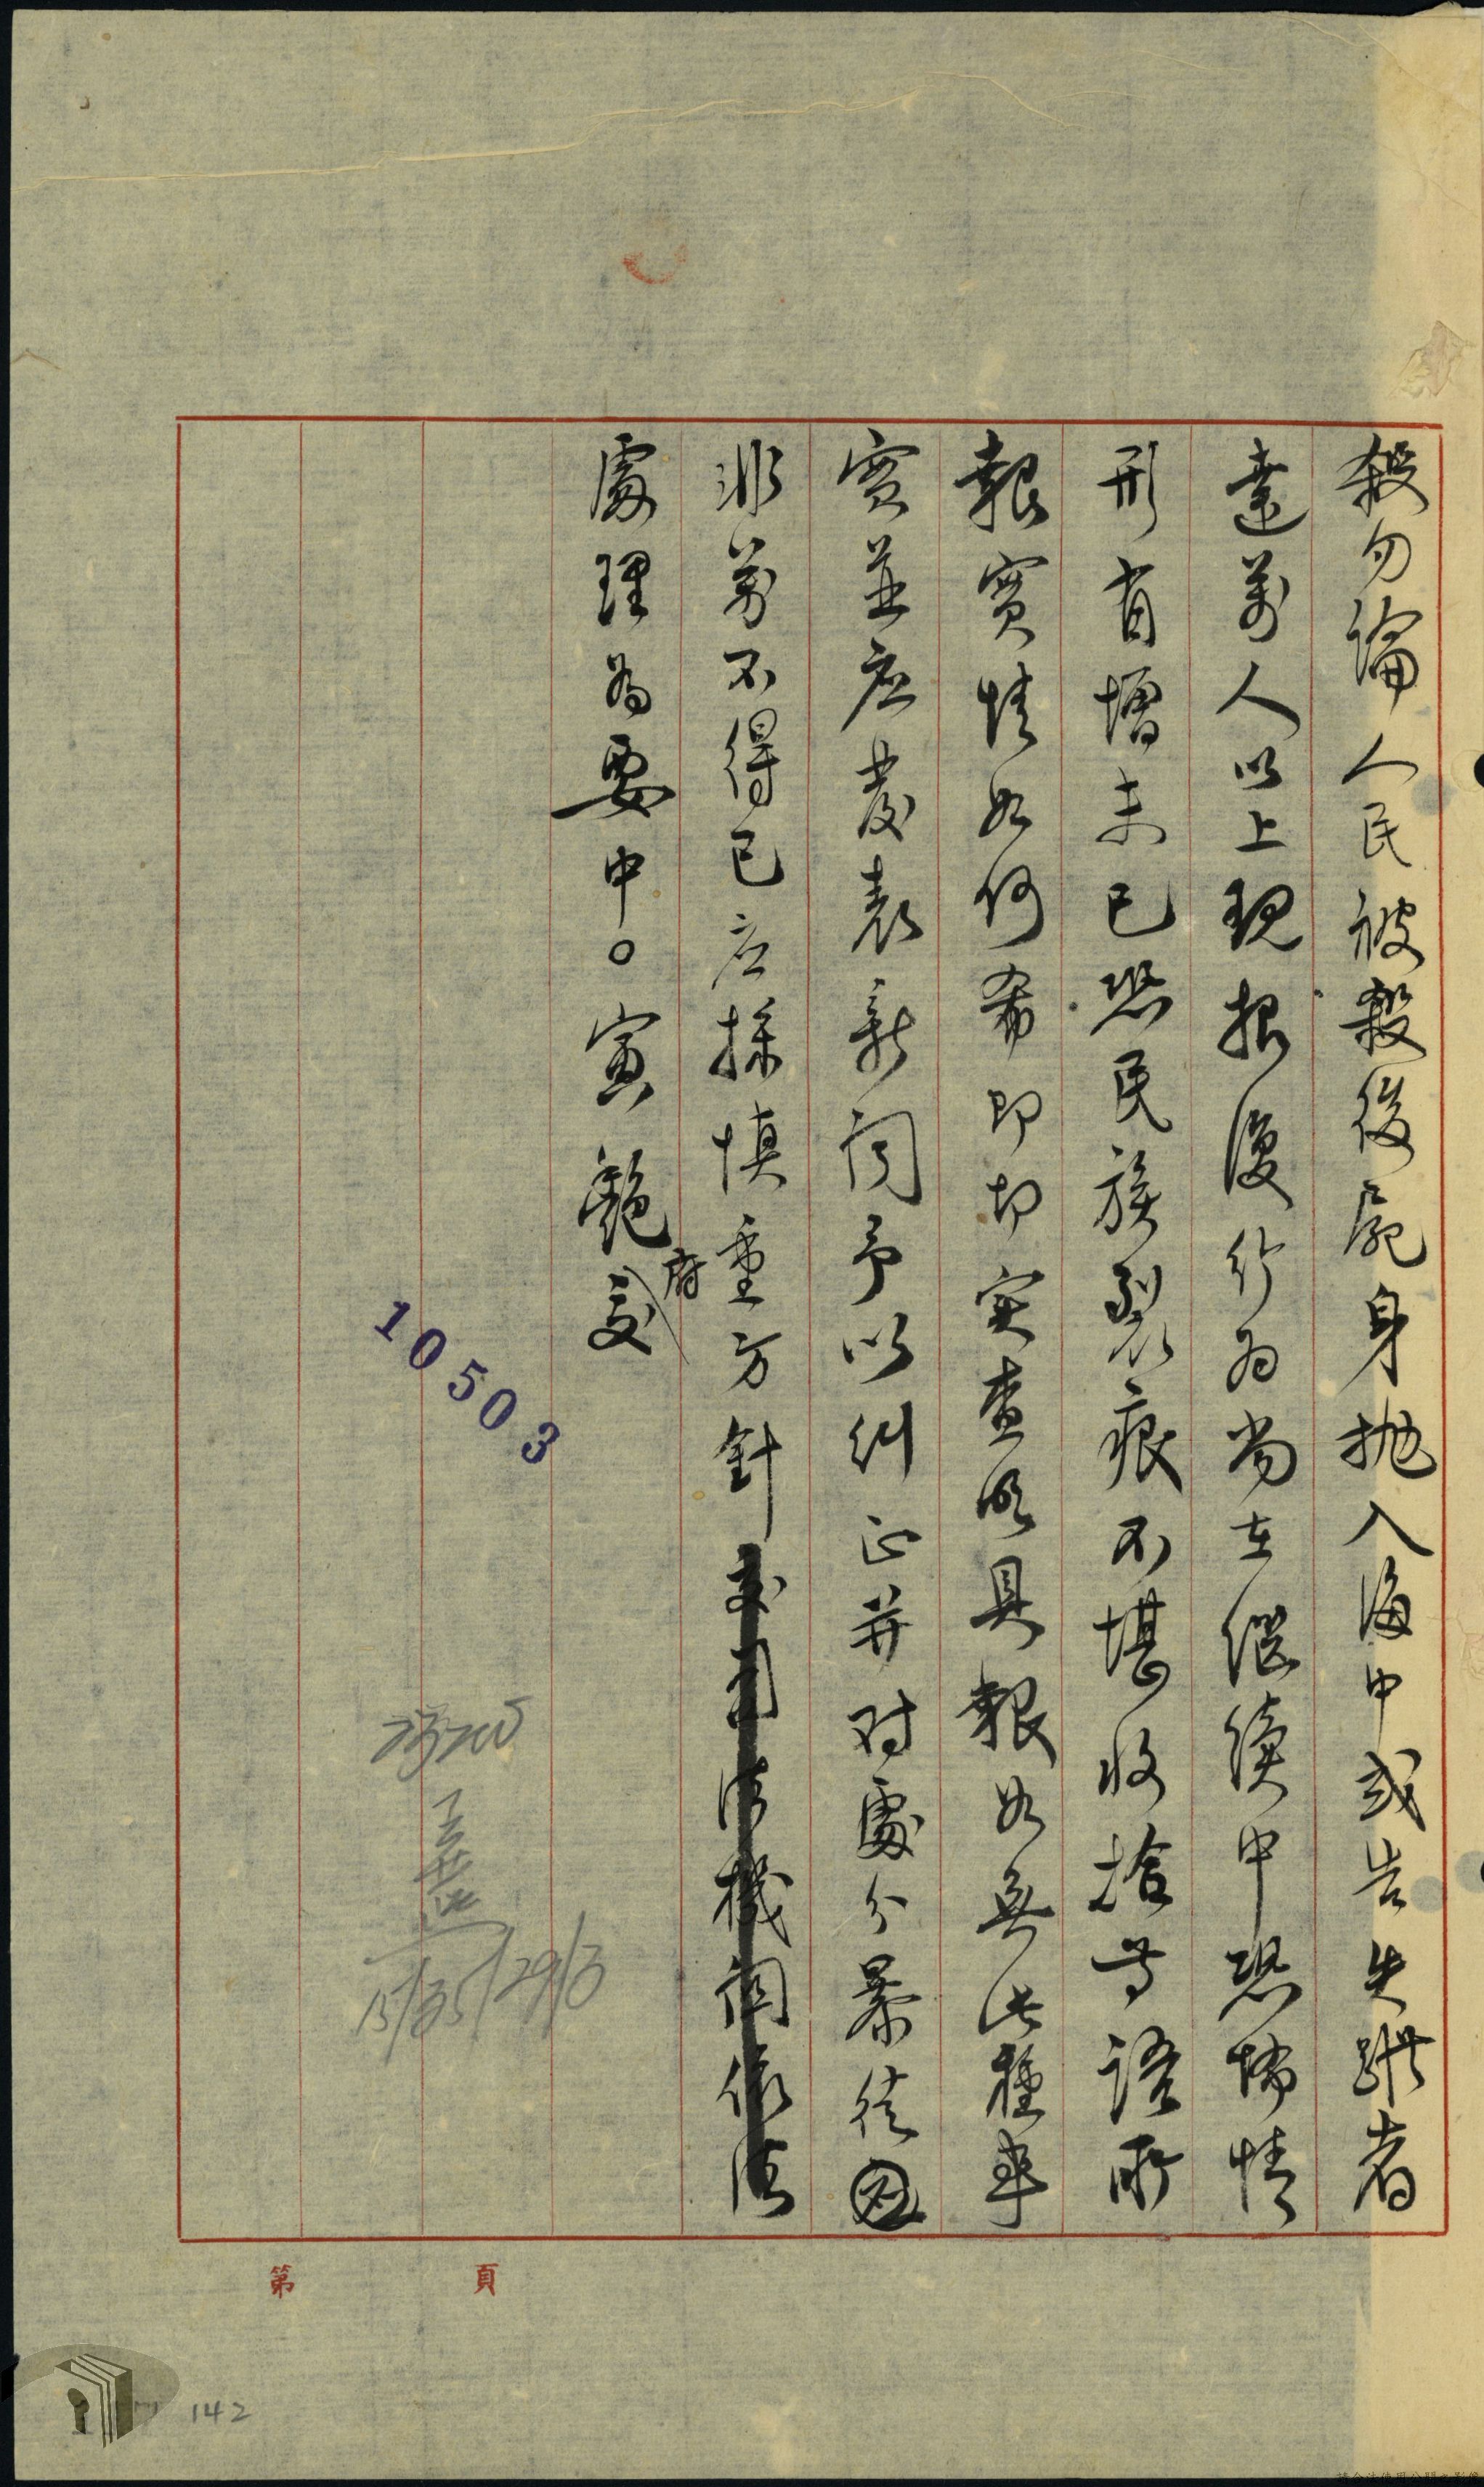 殺勿論人民被殺後屍身拋入海中或告失蹤者
達萬人以上現報復行为尚在繼續中恐怖情
形有增未已恐民族裂痕不堪收拾等語所
報實情如何希即切实查明具報如無此種事
實並应發表新聞予以糾正并对處分暴徒
非萬不得已应採慎重方針交司法機関依法
處理為要中。寅艷
府
10503
15/35/29/3
第 頁
142